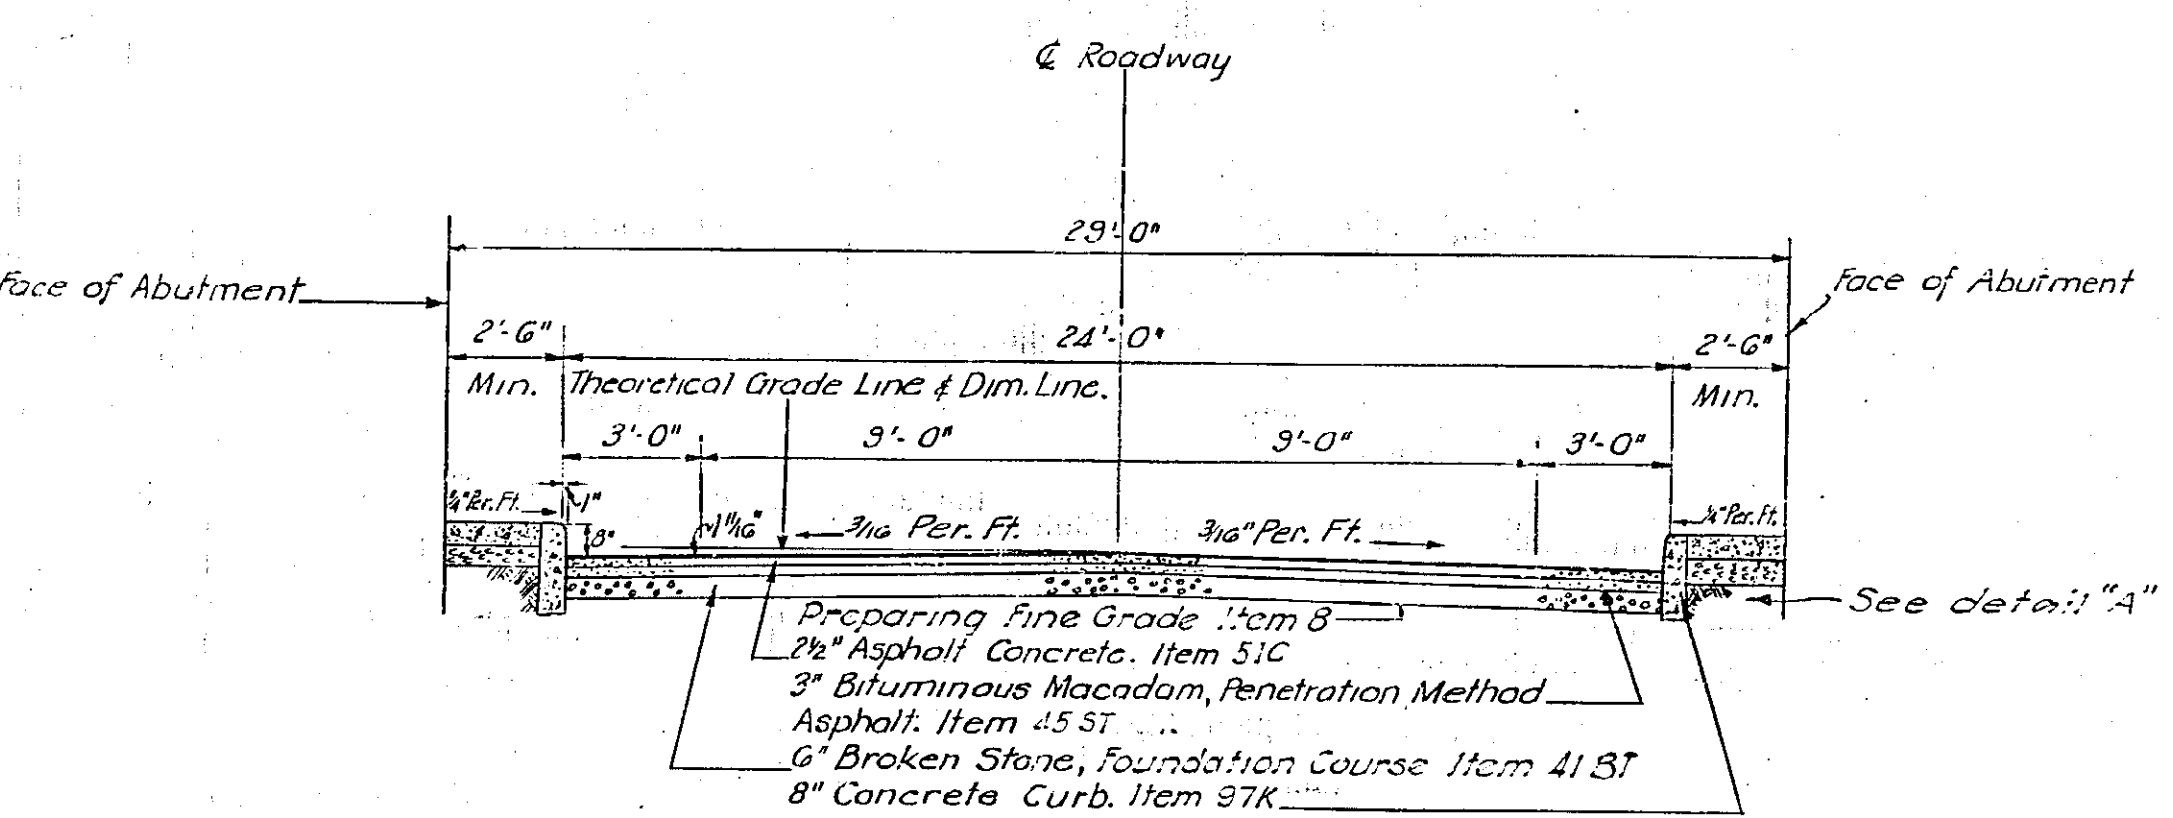 ℄ Roadway
29'-0"
Face of Abutment
Face of Abutment
2'-6"
24'-0"
2'-6"
Min.
Theoretical Grade Line & Dim. Line.
Min.
3'-0"
9'-0"
9'-0"
3'-0"
¼" Per. Ft.
1"
8"
1 11/16"
3/16 Per. Ft.
3/16" Per. Ft.
¼" Per. Ft.
See detail "A"
Preparing Fine Grade Item 8
2½" Asphalt Concrete. Item 51C
3" Bituminous Macadam, Penetration Method
Asphalt. Item 45 ST
6" Broken Stone, Foundation Course Item 41 BT
8" Concrete Curb. Item 97K